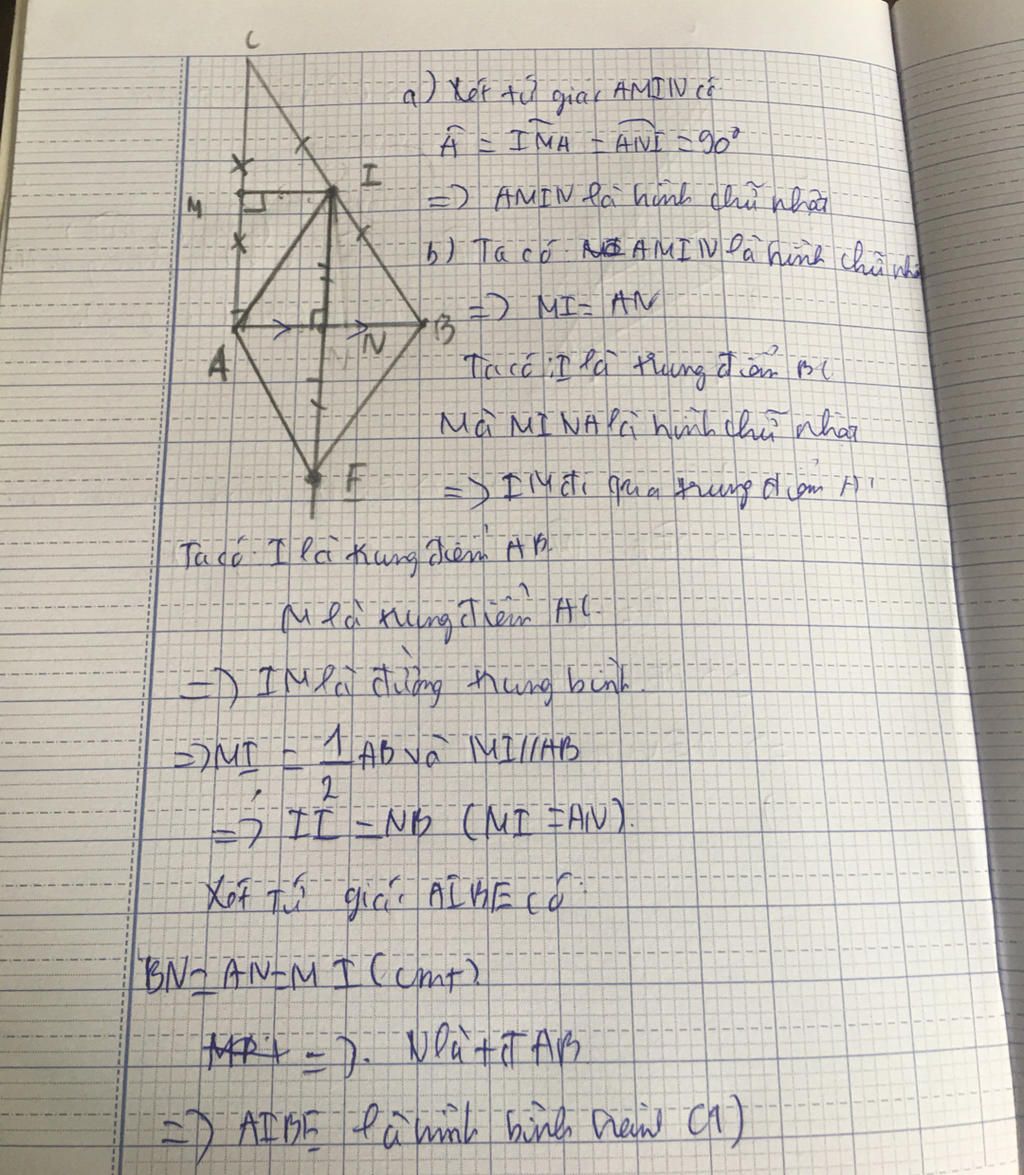 C
I
M
A
N
B
E
a) Xét tứ giác AMIN có
Â = IMA = ANI = 90°
=> AMIN là hình chữ nhật
b) Ta có AMIN là hình chữ nhật
=> MI = AN
Ta có: I là trung điểm BC
Mà MINA là hình chữ nhật
=> IM đi qua trung điểm A
Ta có I là trung điểm AB.
M là trung điểm AC.
=> IM là đường trung bình.
=> MI = 1/2 AB và MI // AB
=> II = NB (MI = AN).
Xét tứ giác AIBE có:
BN = AN = MI (cmt)
=> N là tđ AB
=> AIBE là hình bình hành (1)